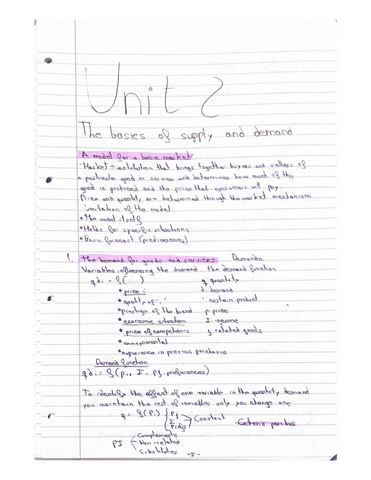 Unit 2
The basics of supply and demand
A model for a basic market:
Market → institution that brings together buyers and sellers of
a particular good or service and determines how much of the
good is produced and the price that consumers will pay.
Price and quantity are determined through the market mechanism
limitation of the model:
• The model itself
• Makes for specific situations
• Basic forecast (predictions)
1. The demand for goods and services: Demanda
Variables influencing the demand the demand function
qdi = f(...) q: quantity
• price i d: demand
• quality of i i: certain product
• prestige of the brand p price
• economic situation I: income
• price of competitors j related goods
• environmental
• experience in previous purchases
Demand function
qdi = f(pi, I, pj, preferences)
To identify the effect of one variable in the quantity demand
you maintain the rest of variables only you change one
q = f(Pi) Pj I Prefs Constant Ceteris paribus
PJ Complements
Non-related
Substitutes
-5-